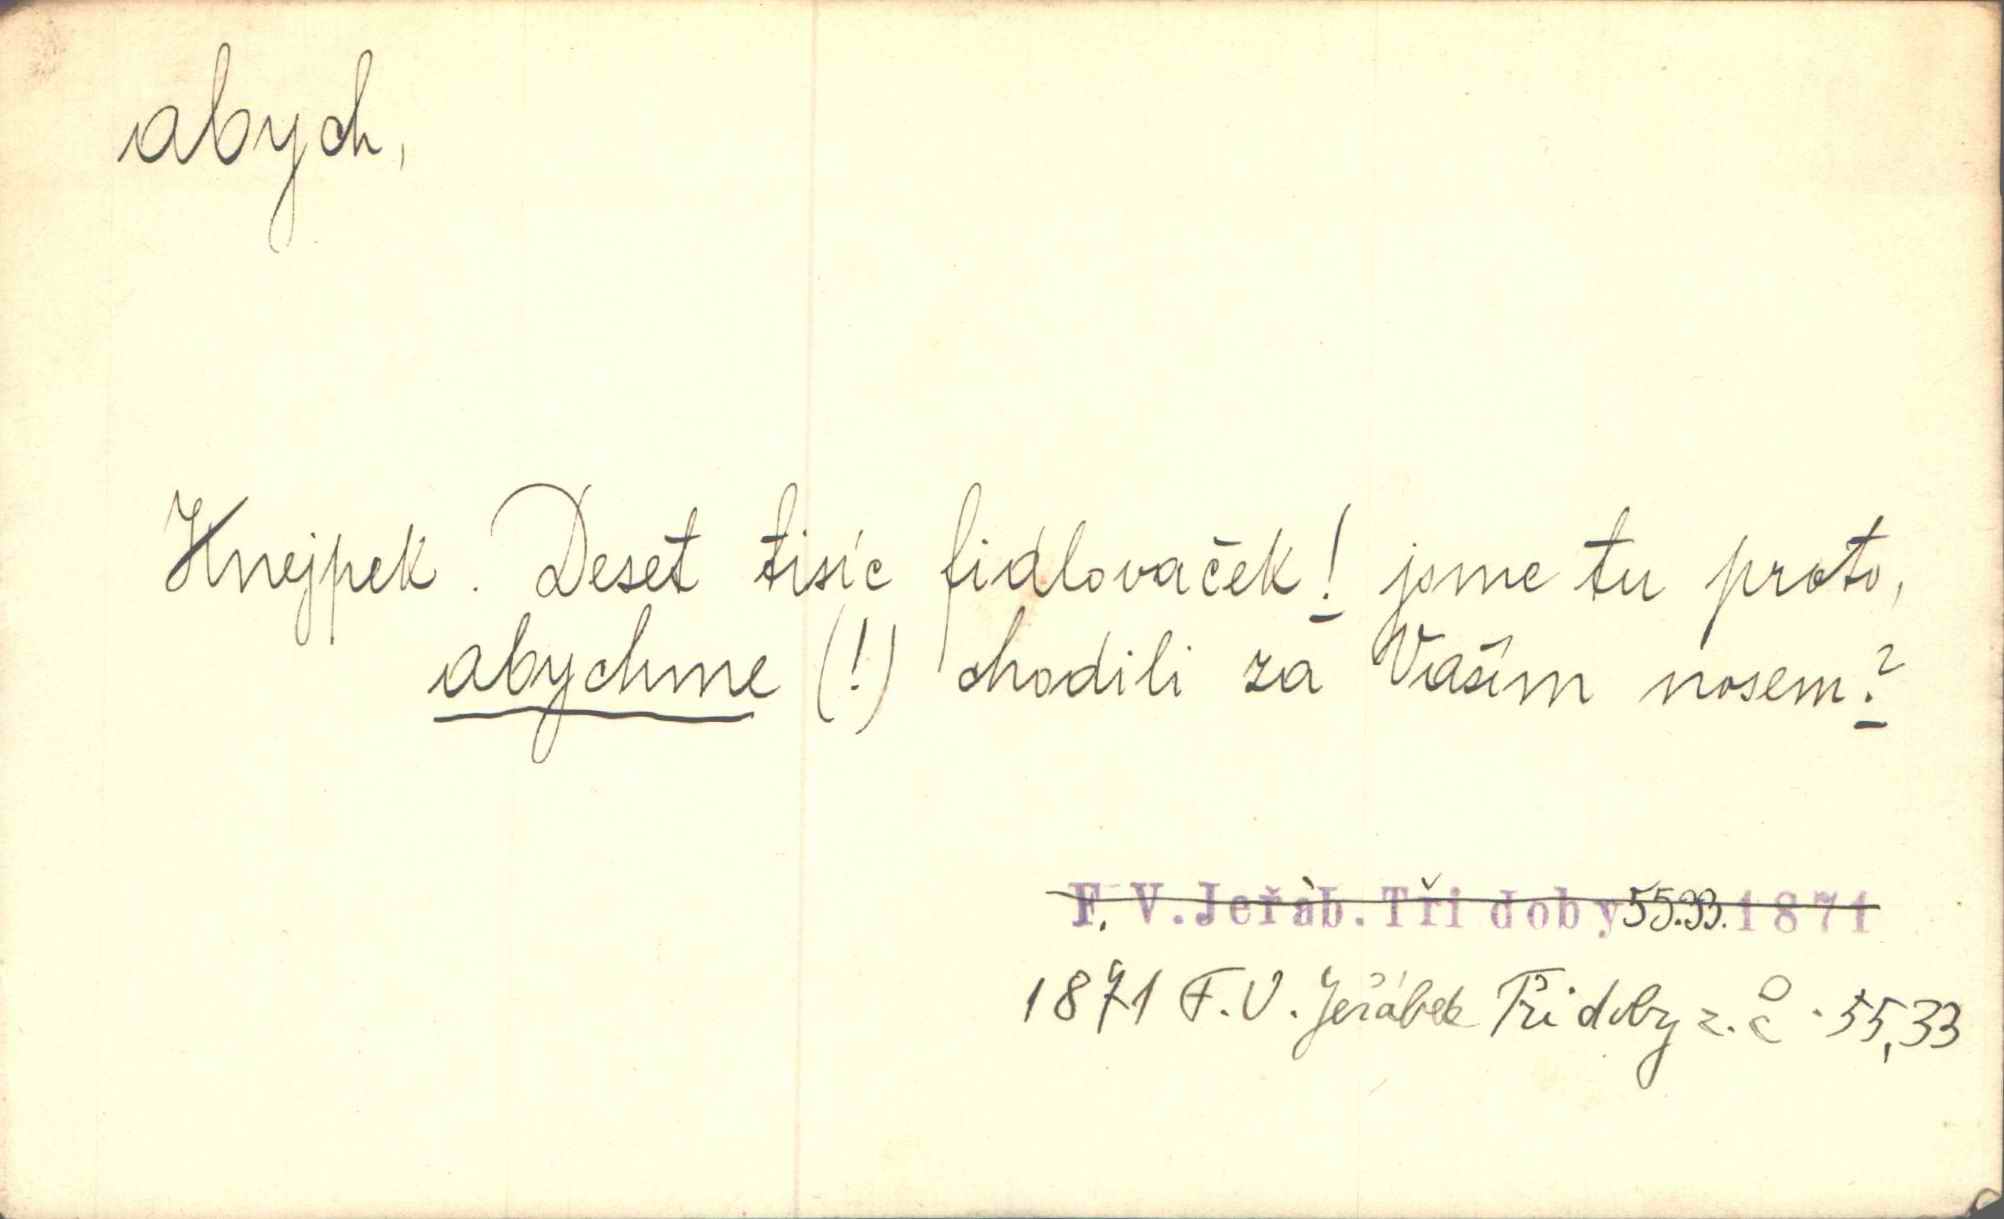 abych,
Knejpek. Deset tisíc fidlovaček! jsme tu proto,
abychme (!) chodili za Vaším nosem?
F. V. Jeřáb. Tři doby 55.33. 1871
1871 F. V. Jeřábek Tři doby z. č. 55,33